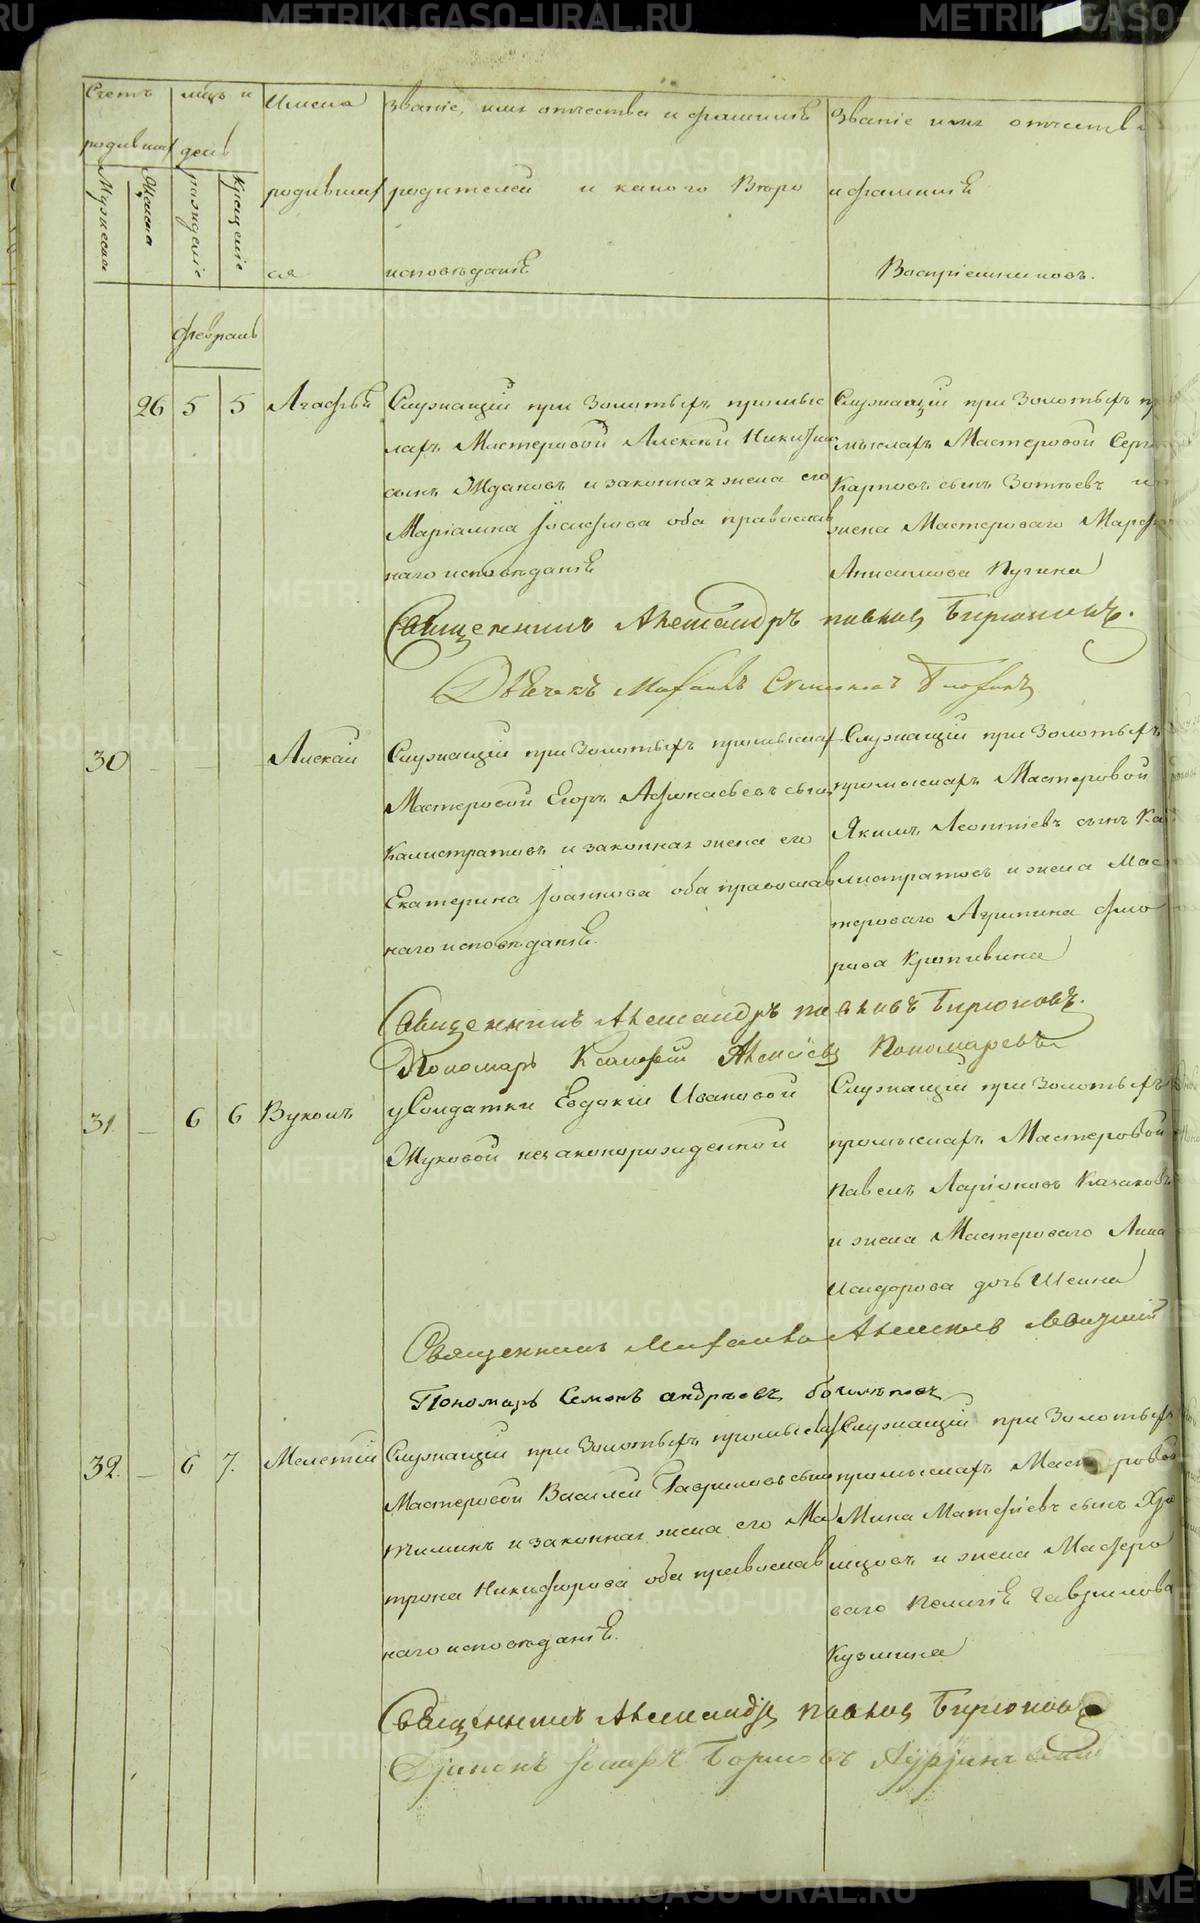 Счетъ
родивших
Мужеска
Женска
мѣсяц и
день
рождение
крещение
Имена
родивших
ся
Звание, имя отчества и фамилия
родителей и какого Вѣро
исповѣдания
Звание имя отчества
и фамилия
Восприемниковъ.
февраль
26 5 5 Агафья
Служащий при Золотыхъ промыс
лахъ Мастеровой Алексей Никитин
сынъ Ждановъ и законная жена его
Мариамна Иосифова оба православ
наго исповѣдания
Служащий при Золотыхъ пр
мыслахъ Мастеровой Серг
Карповъ сынъ Зотѣевъ и
жена Мастероваго Марф
Анисимова Пугина
Священникъ Александръ Павловъ Бирюковъ.
30 — — Алексий
Служащий при Золотыхъ промыслах
Мастеровой Егоръ Афонасьевъ сынъ
Калистратовъ и законная жена его
Екатерина Иоаннова оба православ
наго исповѣдания.
Служащий при Золотыхъ
промыслахъ Мастеровой
Якимъ Леонтиевъ сынъ Ка
листратовъ и жена Мас
тероваго Агрипина Фло
рова Кропивина
Священникъ Александръ Павловъ Бирюковъ.
Пономарь Ксенофонт Алексіевъ Пономаревъ
31. — 6 6 Вуколъ
у Солдатки Евдокіи Ивановой
Жуковой незаконорожденной
Служащий при Золотыхъ
промыслахъ Мастеровой
Павелъ Ларионовъ Казаковъ
и жена Мастероваго Анна
Исидорова дочь Шеина
Священникъ Михаилъ Алексѣев
Пономарь Семенъ андрѣевъ
32. — 6 7. Мелетий
Служащий при Золотыхъ промыслах
Мастеровой Василей Гавриловъ сынъ
тиминъ и законная жена его Ма
трона Никифорова оба православ
наго исповѣдания.
Служащий при Золотыхъ
промыслахъ Мастеровой
Мина Матфіевъ сынъ Хро
мцовъ и жена Мастеро
ваго Пелагія Гаврилова
Кузмина
Священникъ Александръ Павловъ Бирюковъ
METRIKI.GASO-URAL.RU